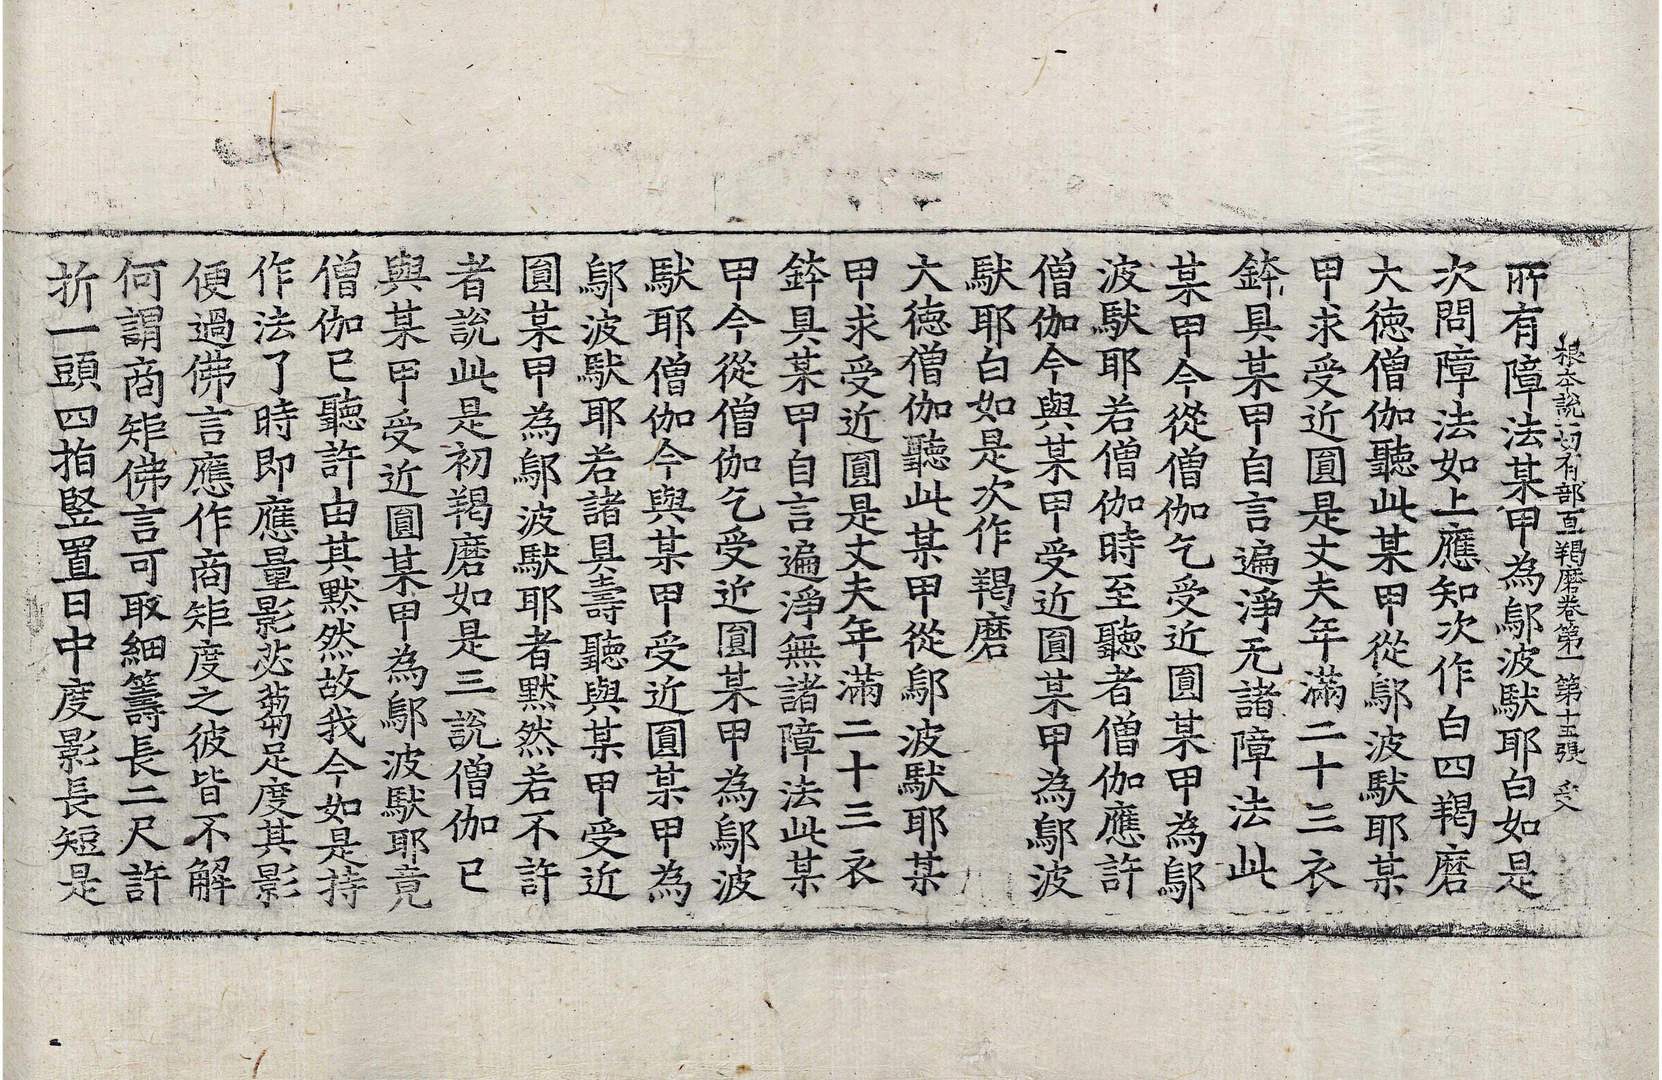 根本說一切有部百一羯磨卷第一 第十五張 受
所有障法某甲為鄔波馱耶白如是
次問障法如上應知次作白四羯磨
大德僧伽聽此某甲從鄔波馱耶某
甲求受近圓是丈夫年滿二十三衣
鉢具某甲自言遍淨无諸障法此
某甲今從僧伽乞受近圓某甲為鄔
波馱耶若僧伽時至聽者僧伽應許
僧伽今與某甲受近圓某甲為鄔波
馱耶白如是次作羯磨
大德僧伽聽此某甲從鄔波馱耶某
甲求受近圓是丈夫年滿二十三衣
鉢具某甲自言遍淨無諸障法此某
甲今從僧伽乞受近圓某甲為鄔波
馱耶僧伽今與某甲受近圓某甲為
鄔波馱耶若諸具壽聽與某甲受近
圓某甲為鄔波馱耶者默然若不許
者說此是初羯磨如是三說僧伽已
與某甲受近圓某甲為鄔波馱耶竟
僧伽已聽許由其默然故我今如是持
作法了時即應量影苾蒭足度其影
便過佛言應作商矩度之彼皆不解
何謂商矩佛言可取細籌長二尺許
折一頭四指豎置日中度影長短是